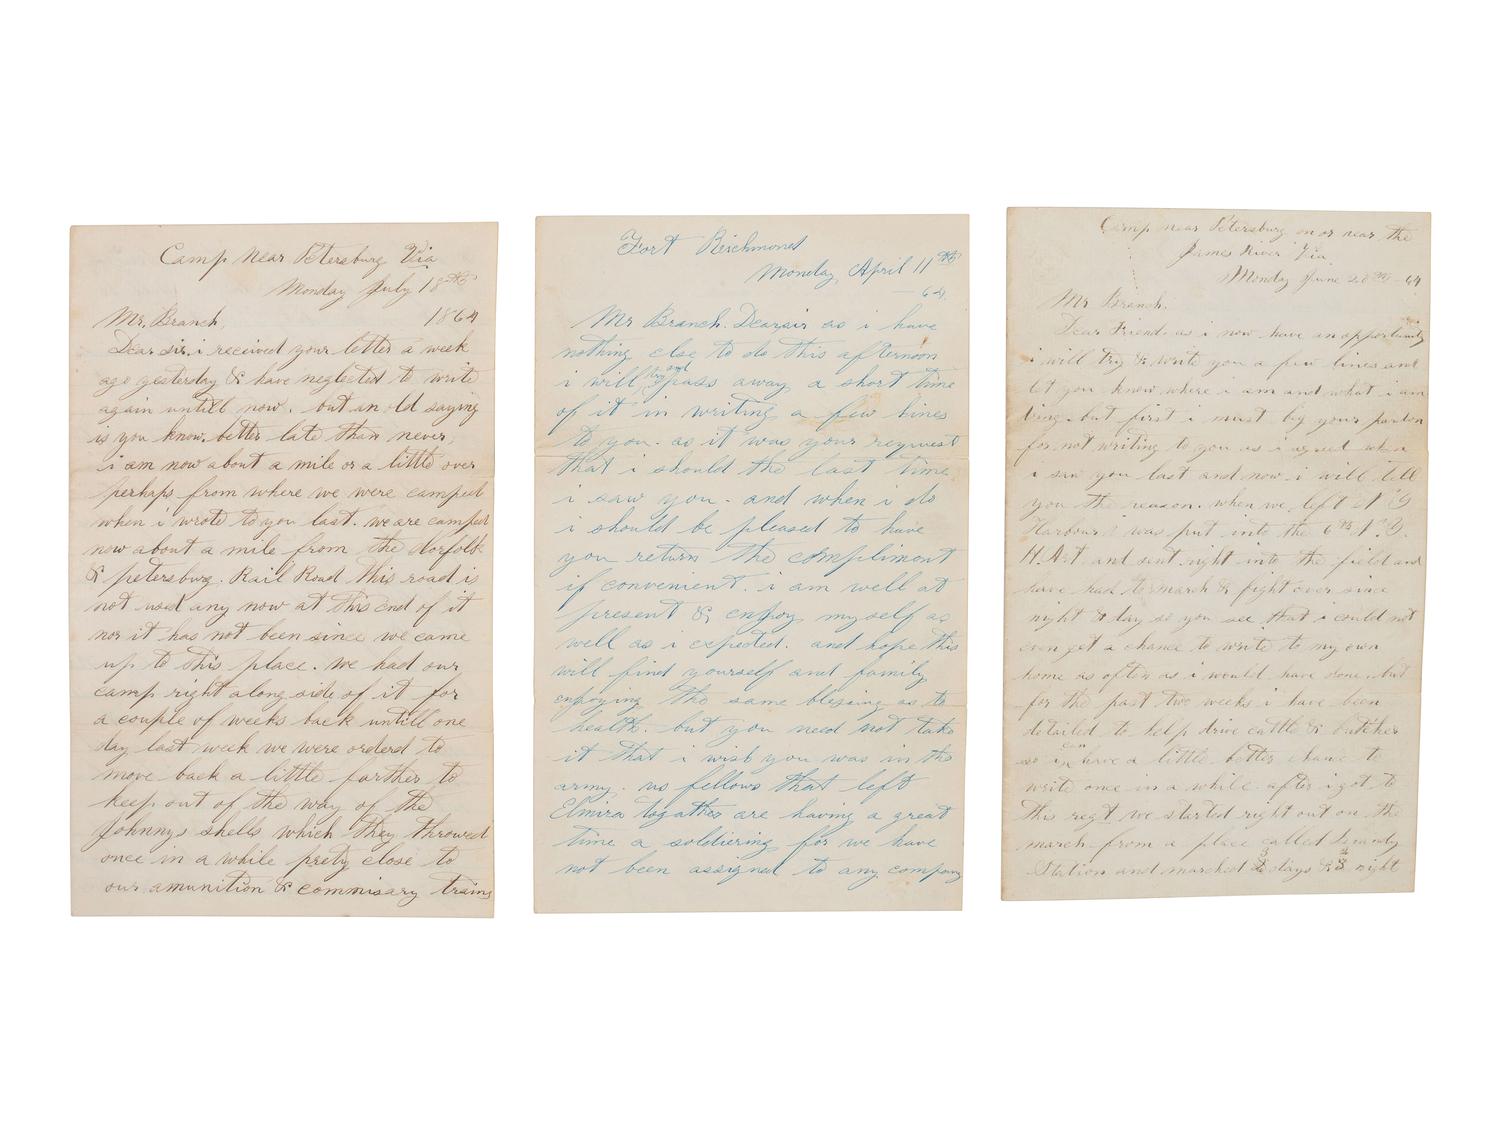 Camp Near Petersburg Via
Monday July 18th
1864
Mr. Branch,
Dear sir. i received your letter a week
ago yesterday & have neglected to write
again untill now. but an old saying
is you know. better late than never,
i am now about a mile or a little over
perhaps from where we were camped
when i wrote to you last. we are camped
now about a mile from the Norfolk
& petersburg. Rail Road this road is
not used any now at this end of it
nor it has not been since we came
up to this place. we had our
camp right along side of it for
a couple of weeks back untill one
day last week we were orderd to
move back a little farther to
keep out of the way of the
Johnnys shells which they throwed
once in a while prety close to
our amunition & commisary trains
Fort Reichmond
Monday, April 11th
- 64.
Mr Branch. Dear sir as i have
nothing else to do this afternoon
i will try and pass away a short time
of it in writing a few lines
to you. as it was your reqwest
that i should the last time
i saw you. and when i do
i should be pleased to have
you return the compliment
if convenient. i am well at
present & enjoy my self as
well as i expected. and hope this
will find yourself and family
enjoying the same blessing as to
health. but you need not take
it that i wish you was in the
army. us fellows that left
Elmira togather are having a great
time a soldiering for we have
not been assigned to any company
Camp near Petersburg on or near the
James River Via
Monday June 20th - 64
Mr Branch.
Dear Friend. as i now have an opportunity
i will try & write you a few lines and
let you know where i am and what i am
doing. but first i must beg your pardon
for not writing to you as i agreed when
i saw you last and now i will tell
you the reason. when we left N.Y.
Harbour i was put into the 6th N.Y.
H. Art and sent right into the field and
have had to march & fight ever since
night & day so you see that i could not
even get a chance to write to my own
home as often as i would have done. but
for the past two weeks i have been
detailed to help drive cattle & butcher
so i can have a little better chance to
write once in a while. after i got to
this regt we started right out on the
march from a place called Brandy
Station and marched 3 days & 3 night